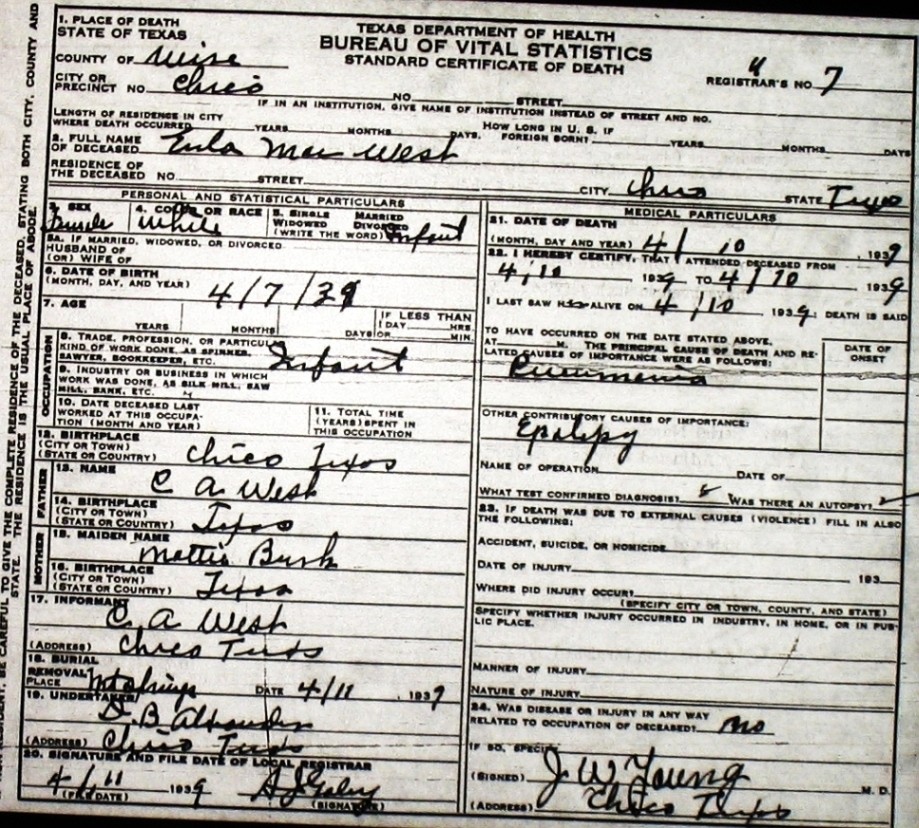 TEXAS DEPARTMENT OF HEALTH
BUREAU OF VITAL STATISTICS
STANDARD CERTIFICATE OF DEATH
1. PLACE OF DEATH
STATE OF TEXAS
COUNTY OF Wise
REGISTRAR'S NO. 7
CITY OR
PRECINCT NO. Chico NO. STREET
IF IN AN INSTITUTION, GIVE NAME OF INSTITUTION INSTEAD OF STREET AND NO.
LENGTH OF RESIDENCE IN CITY
WHERE DEATH OCCURRED YEARS MONTHS DAYS. HOW LONG IN U. S. IF
FOREIGN BORN? YEARS MONTHS DAYS
2. FULL NAME
OF DECEASED Eula Mae West
RESIDENCE OF
THE DECEASED NO. STREET CITY Chico STATE Texas
PERSONAL AND STATISTICAL PARTICULARS
3. SEX Female
4. COLOR OR RACE White
5. SINGLE MARRIED
WIDOWED DIVORCED
(WRITE THE WORD) Infant
5A. IF MARRIED, WIDOWED, OR DIVORCED
HUSBAND OF
(OR) WIFE OF
6. DATE OF BIRTH
(MONTH, DAY, AND YEAR) 4/7/39
7. AGE
YEARS MONTHS DAYS
IF LESS THAN
1 DAY HRS.
OR MIN.
OCCUPATION
8. TRADE, PROFESSION, OR PARTICULAR
KIND OF WORK DONE, AS SPINNER,
SAWYER, BOOKKEEPER, ETC. Infant
9. INDUSTRY OR BUSINESS IN WHICH
WORK WAS DONE, AS SILK MILL, SAW
MILL, BANK, ETC.
10. DATE DECEASED LAST
WORKED AT THIS OCCUPA-
TION (MONTH AND YEAR)
11. TOTAL TIME
(YEARS) SPENT IN
THIS OCCUPATION
12. BIRTHPLACE
(CITY OR TOWN)
(STATE OR COUNTRY) Chico Texas
FATHER
13. NAME
C A West
14. BIRTHPLACE
(CITY OR TOWN)
(STATE OR COUNTRY) Texas
MOTHER
15. MAIDEN NAME
Mattie Bush
16. BIRTHPLACE
(CITY OR TOWN)
(STATE OR COUNTRY) Texas
17. INFORMANT
C. A West
(ADDRESS) Chico Texas
18. BURIAL
REMOVAL
PLACE DATE 4/11, 1939
19. UNDERTAKER
D. B Alexander
(ADDRESS) Chico Texas
20. SIGNATURE AND FILE DATE OF LOCAL REGISTRAR
4/11 1939
(FILE DATE) (SIGNATURE)
MEDICAL PARTICULARS
21. DATE OF DEATH
(MONTH, DAY AND YEAR) 4/10, 1939
22. I HEREBY CERTIFY, THAT I ATTENDED DECEASED FROM
4/10 1939 TO 4/10 1939
I LAST SAW H ALIVE ON 4/10 1939; DEATH IS SAID
TO HAVE OCCURRED ON THE DATE STATED ABOVE,
AT M. THE PRINCIPAL CAUSE OF DEATH AND RE-
LATED CAUSES OF IMPORTANCE WERE AS FOLLOWS:
DATE OF
ONSET
Pneumonia
OTHER CONTRIBUTORY CAUSES OF IMPORTANCE:
Epalipy
NAME OF OPERATION DATE OF
WHAT TEST CONFIRMED DIAGNOSIS? WAS THERE AN AUTOPSY?
23. IF DEATH WAS DUE TO EXTERNAL CAUSES (VIOLENCE) FILL IN ALSO
THE FOLLOWING:
ACCIDENT, SUICIDE, OR HOMICIDE
DATE OF INJURY 193
WHERE DID INJURY OCCUR?
(SPECIFY CITY OR TOWN, COUNTY, AND STATE)
SPECIFY WHETHER INJURY OCCURRED IN INDUSTRY, IN HOME, OR IN PUB-
LIC PLACE.
MANNER OF INJURY
NATURE OF INJURY
24. WAS DISEASE OR INJURY IN ANY WAY
RELATED TO OCCUPATION OF DECEASED? no
IF SO, SPECIFY
(SIGNED) J W Young M. D.
(ADDRESS) Chico Texas
BE CAREFUL TO GIVE COMPLETE RESIDENCE OF THE DECEASED, STATING BOTH CITY, COUNTY AND
STATE. THE RESIDENCE IS THE USUAL PLACE OF ABODE.